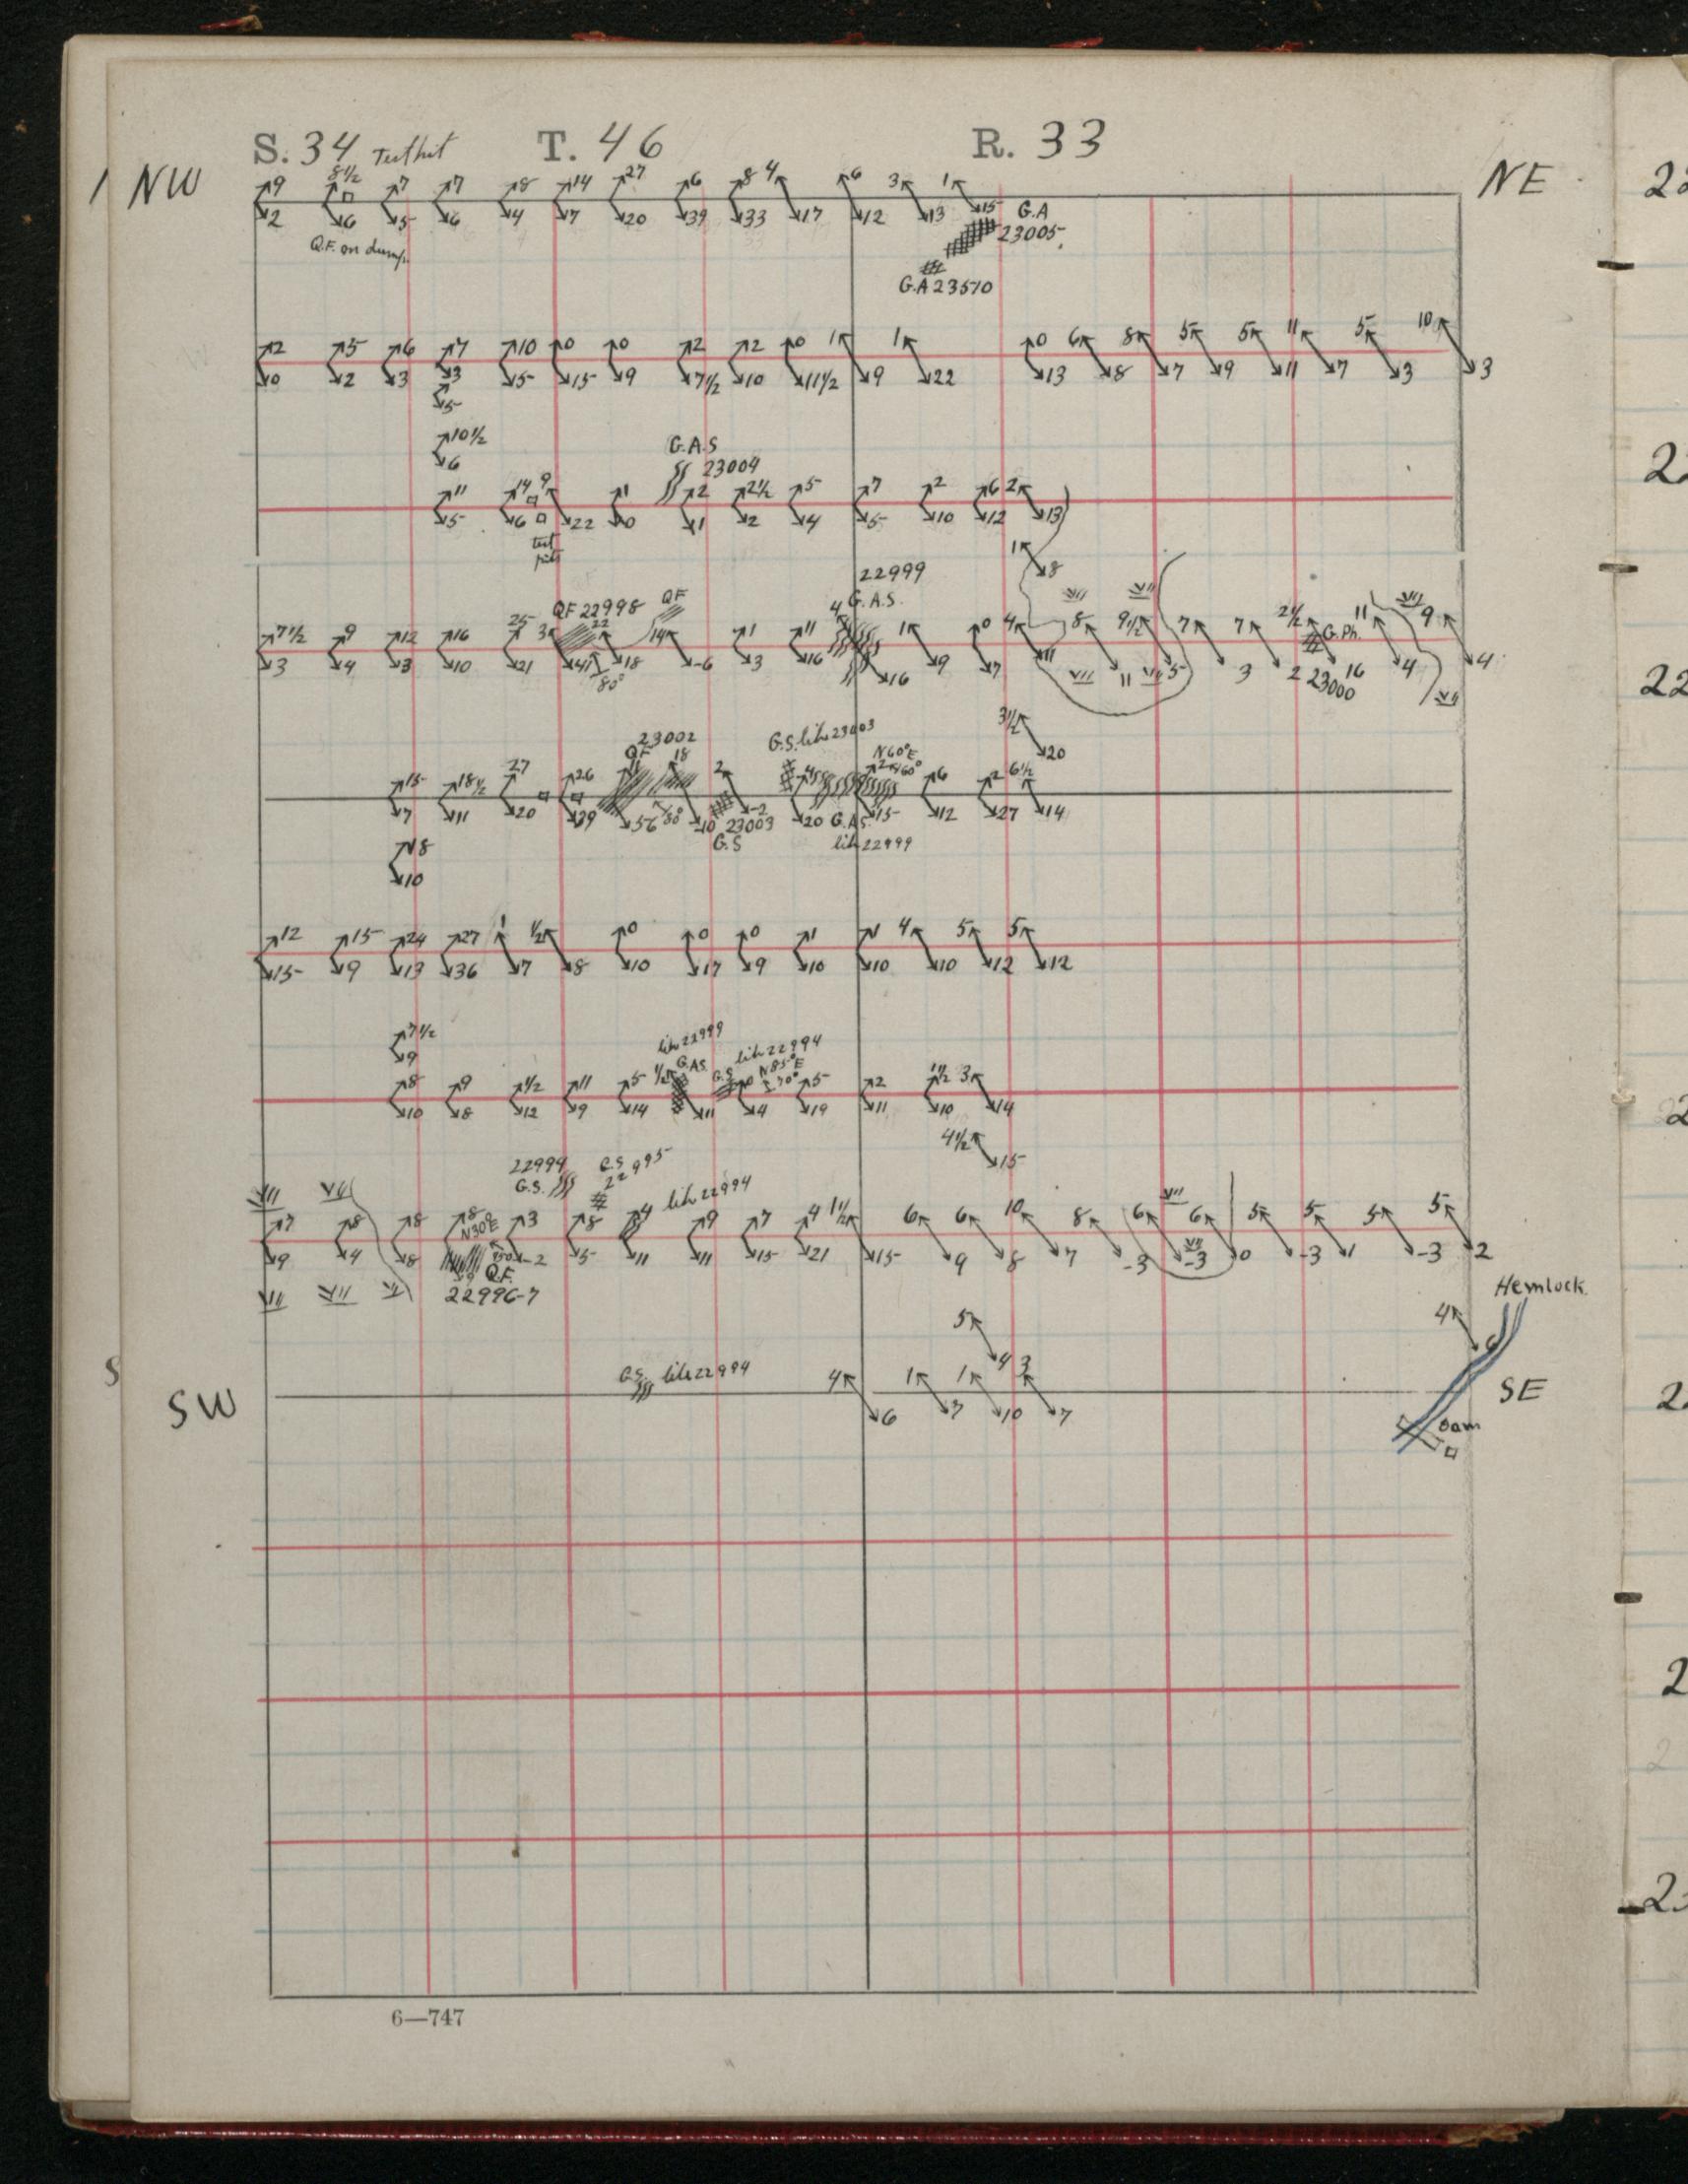 S. 34 T. 46 R. 33
1 NW NE
9 8½ 7 7 8 14 27 6 8 4 6 3 1
2 6 5 6 4 7 20 39 33 17 12 13 15 G.A
Q.F. on dump. 23005
G.A 23510
2 5 6 7 10 0 0 2 2 0 1 1 0 6 8 5 5 11 5 10
0 2 3 3 5 15 9 7½ 10 11½ 9 22 13 8 7 9 11 7 3 3
5
10½ G.A.S
6 23004
11 14 9 1 2 2½ 5 7 2 6 2
5 6 22 0 1 2 4 5 10 12 13
test pits
1 8
22999
QF 22998 QF G.A.S.
7½ 9 12 16 25 3 22 14 1 11 4 1 0 4 8 9½ 7 7 2½ G.Ph. 11 9
3 4 3 10 21 41 18 -6 3 16 16 9 7 11 11 5 3 2 16 4 4
80° 23000
3½
20
23002 G.S. like 23003
QF N60°E
15 18½ 27 26 11 18 2 4 2 60° 6 2 6½
7 11 20 39 56 80° 10 -2 20 15 12 27 14
23003 G.A.S.
G.S like 22999
8
10
12 15 24 27 1 ½ 0 0 0 1 1 4 5 5
15 9 13 36 7 8 10 17 9 10 10 10 12 12
7½ like 22999
9 G.AS. like 22994
8 9 ½ 11 5 ½ G.S. 0 N85°E 5 2 1½ 3
10 8 12 9 14 11 4 70° 19 11 10 14
4½
15
22994 G.S. 22995
G.S. like 22994
7 8 8 8 3 8 4 9 7 4 1½ 6 6 10 8 6 6 5 5 5 5
N30°E
9 4 8 9 -2 5 11 11 15 21 15 9 8 7 -3 -3 0 -3 1 -3 2
Q.F.
22996-7
Hemlock
5 4
4 6
G.S. like 22994 4 1 1 3
S
SW 6 7 10 7 SE
Dam
6—747